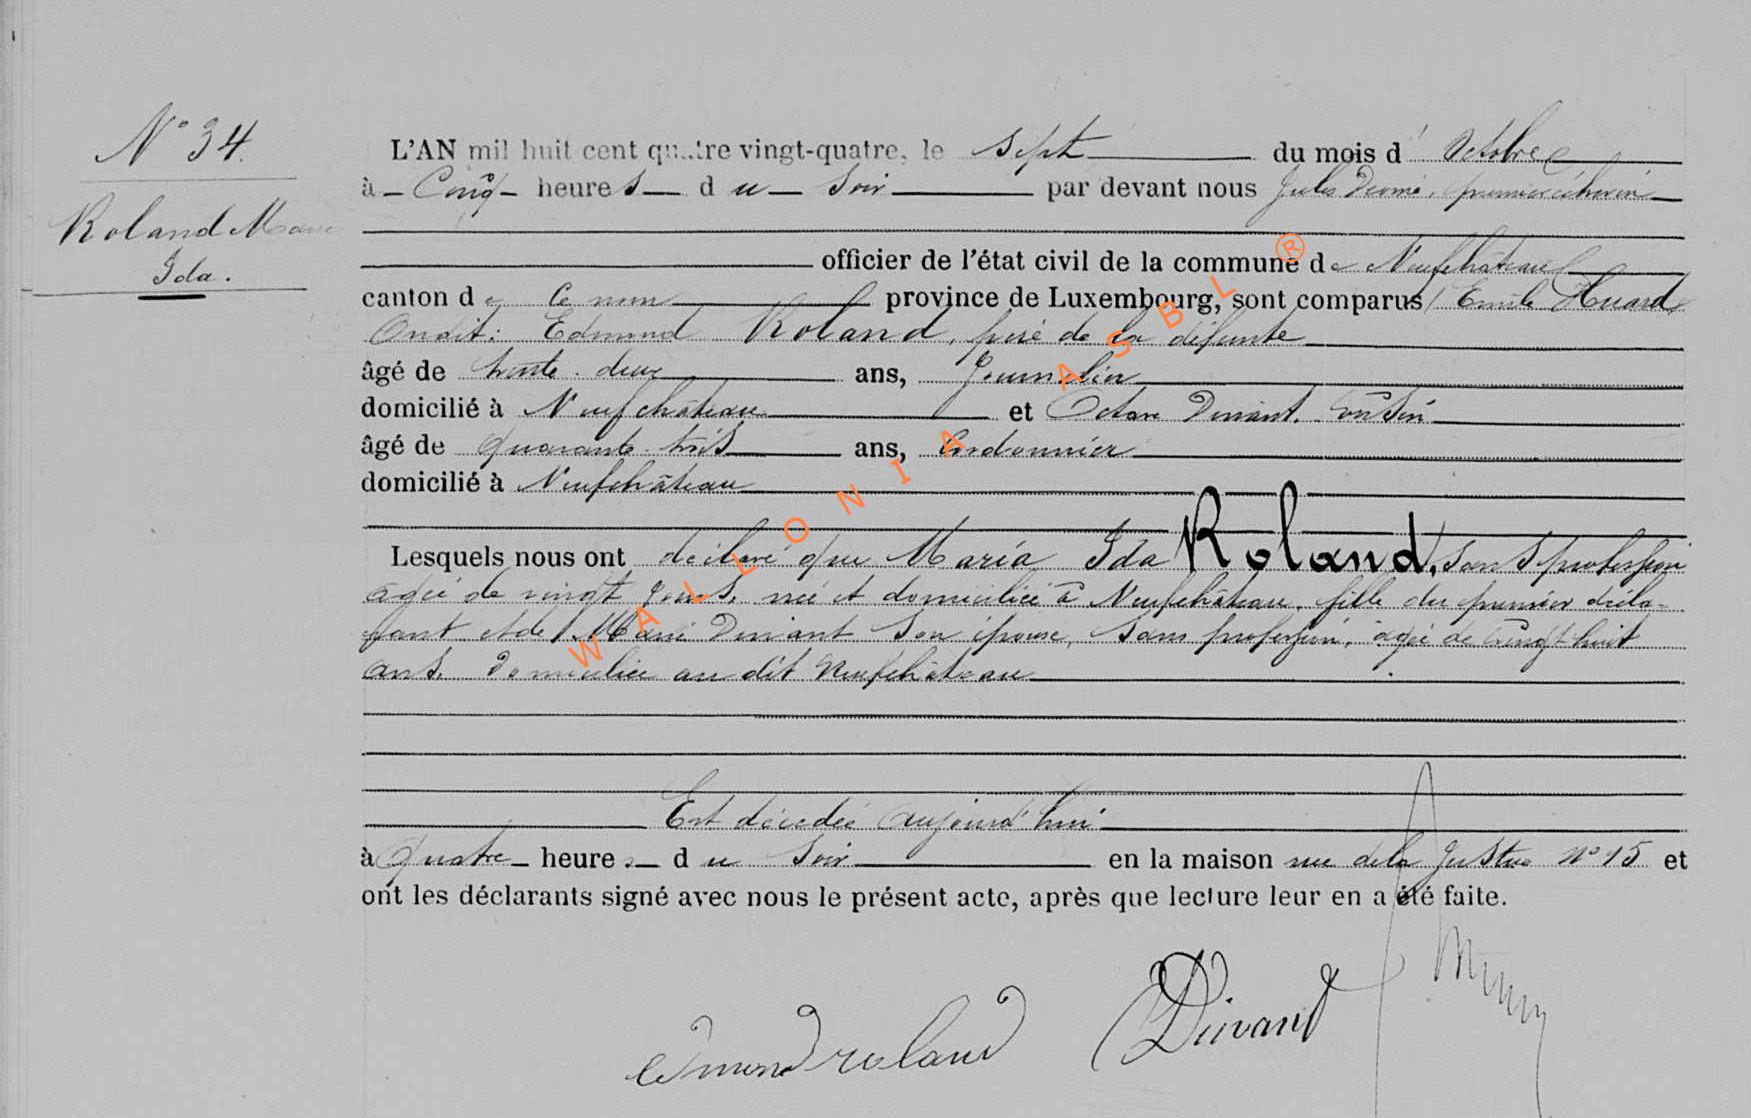 N° 34.
Roland Marie
Ida.
L'AN mil huit cent quatre vingt-quatre, le sept du mois d'Octobre
à Cinq heures du soir par devant nous Jules premier échevin
officier de l'état civil de la commune de Neufchâteau
canton de Ce nom province de Luxembourg, sont comparus Emile
Ondit: Edmond Roland, père de la défunte
âgé de trente-deux ans, Journalier
domicilié à Neufchâteau et Octave Dinant, cousin
âgé de quarante-trois ans, Cordonnier
domicilié à Neufchâteau
Lesquels nous ont déclaré que Maria Ida Roland, sans profession
agée de vingt jours, née et domiciliée à Neufchâteau, fille du premier décla-
rant et de Marie Dinant son épouse, sans profession, agée de vingt-huit
ans, domiciliée au dit Neufchâteau
Est décédée aujourd'hui
à Quatre heures du soir en la maison rue de la Justice N° 15 et
ont les déclarants signé avec nous le présent acte, après que lecture leur en a été faite.
edmond roland
Dinant
WALLONIA ASBL ®